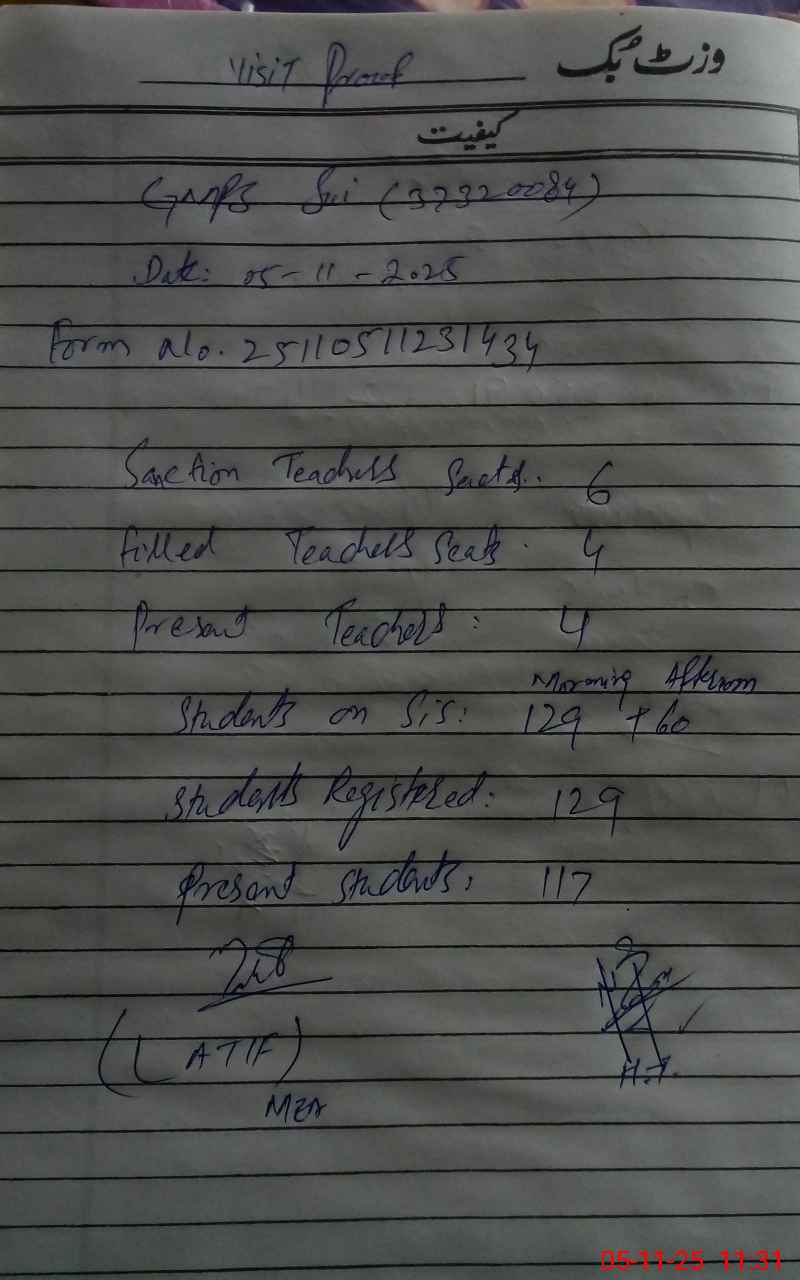 Visit Proof وزٹ بُک
کیفیت
GMPS Sui (37320084)
Date: 05-11-2025
Form No. 25110511231434
Sanction Teachers Seats. 6
Filled Teachers Seats. 4
Present Teachers: 4
Morning Afternoon
Students on SiS: 129 + 60
Students Registered: 129
Present Students: 117
(LATIF)
MEA
H.T.
05-11-25 11:31